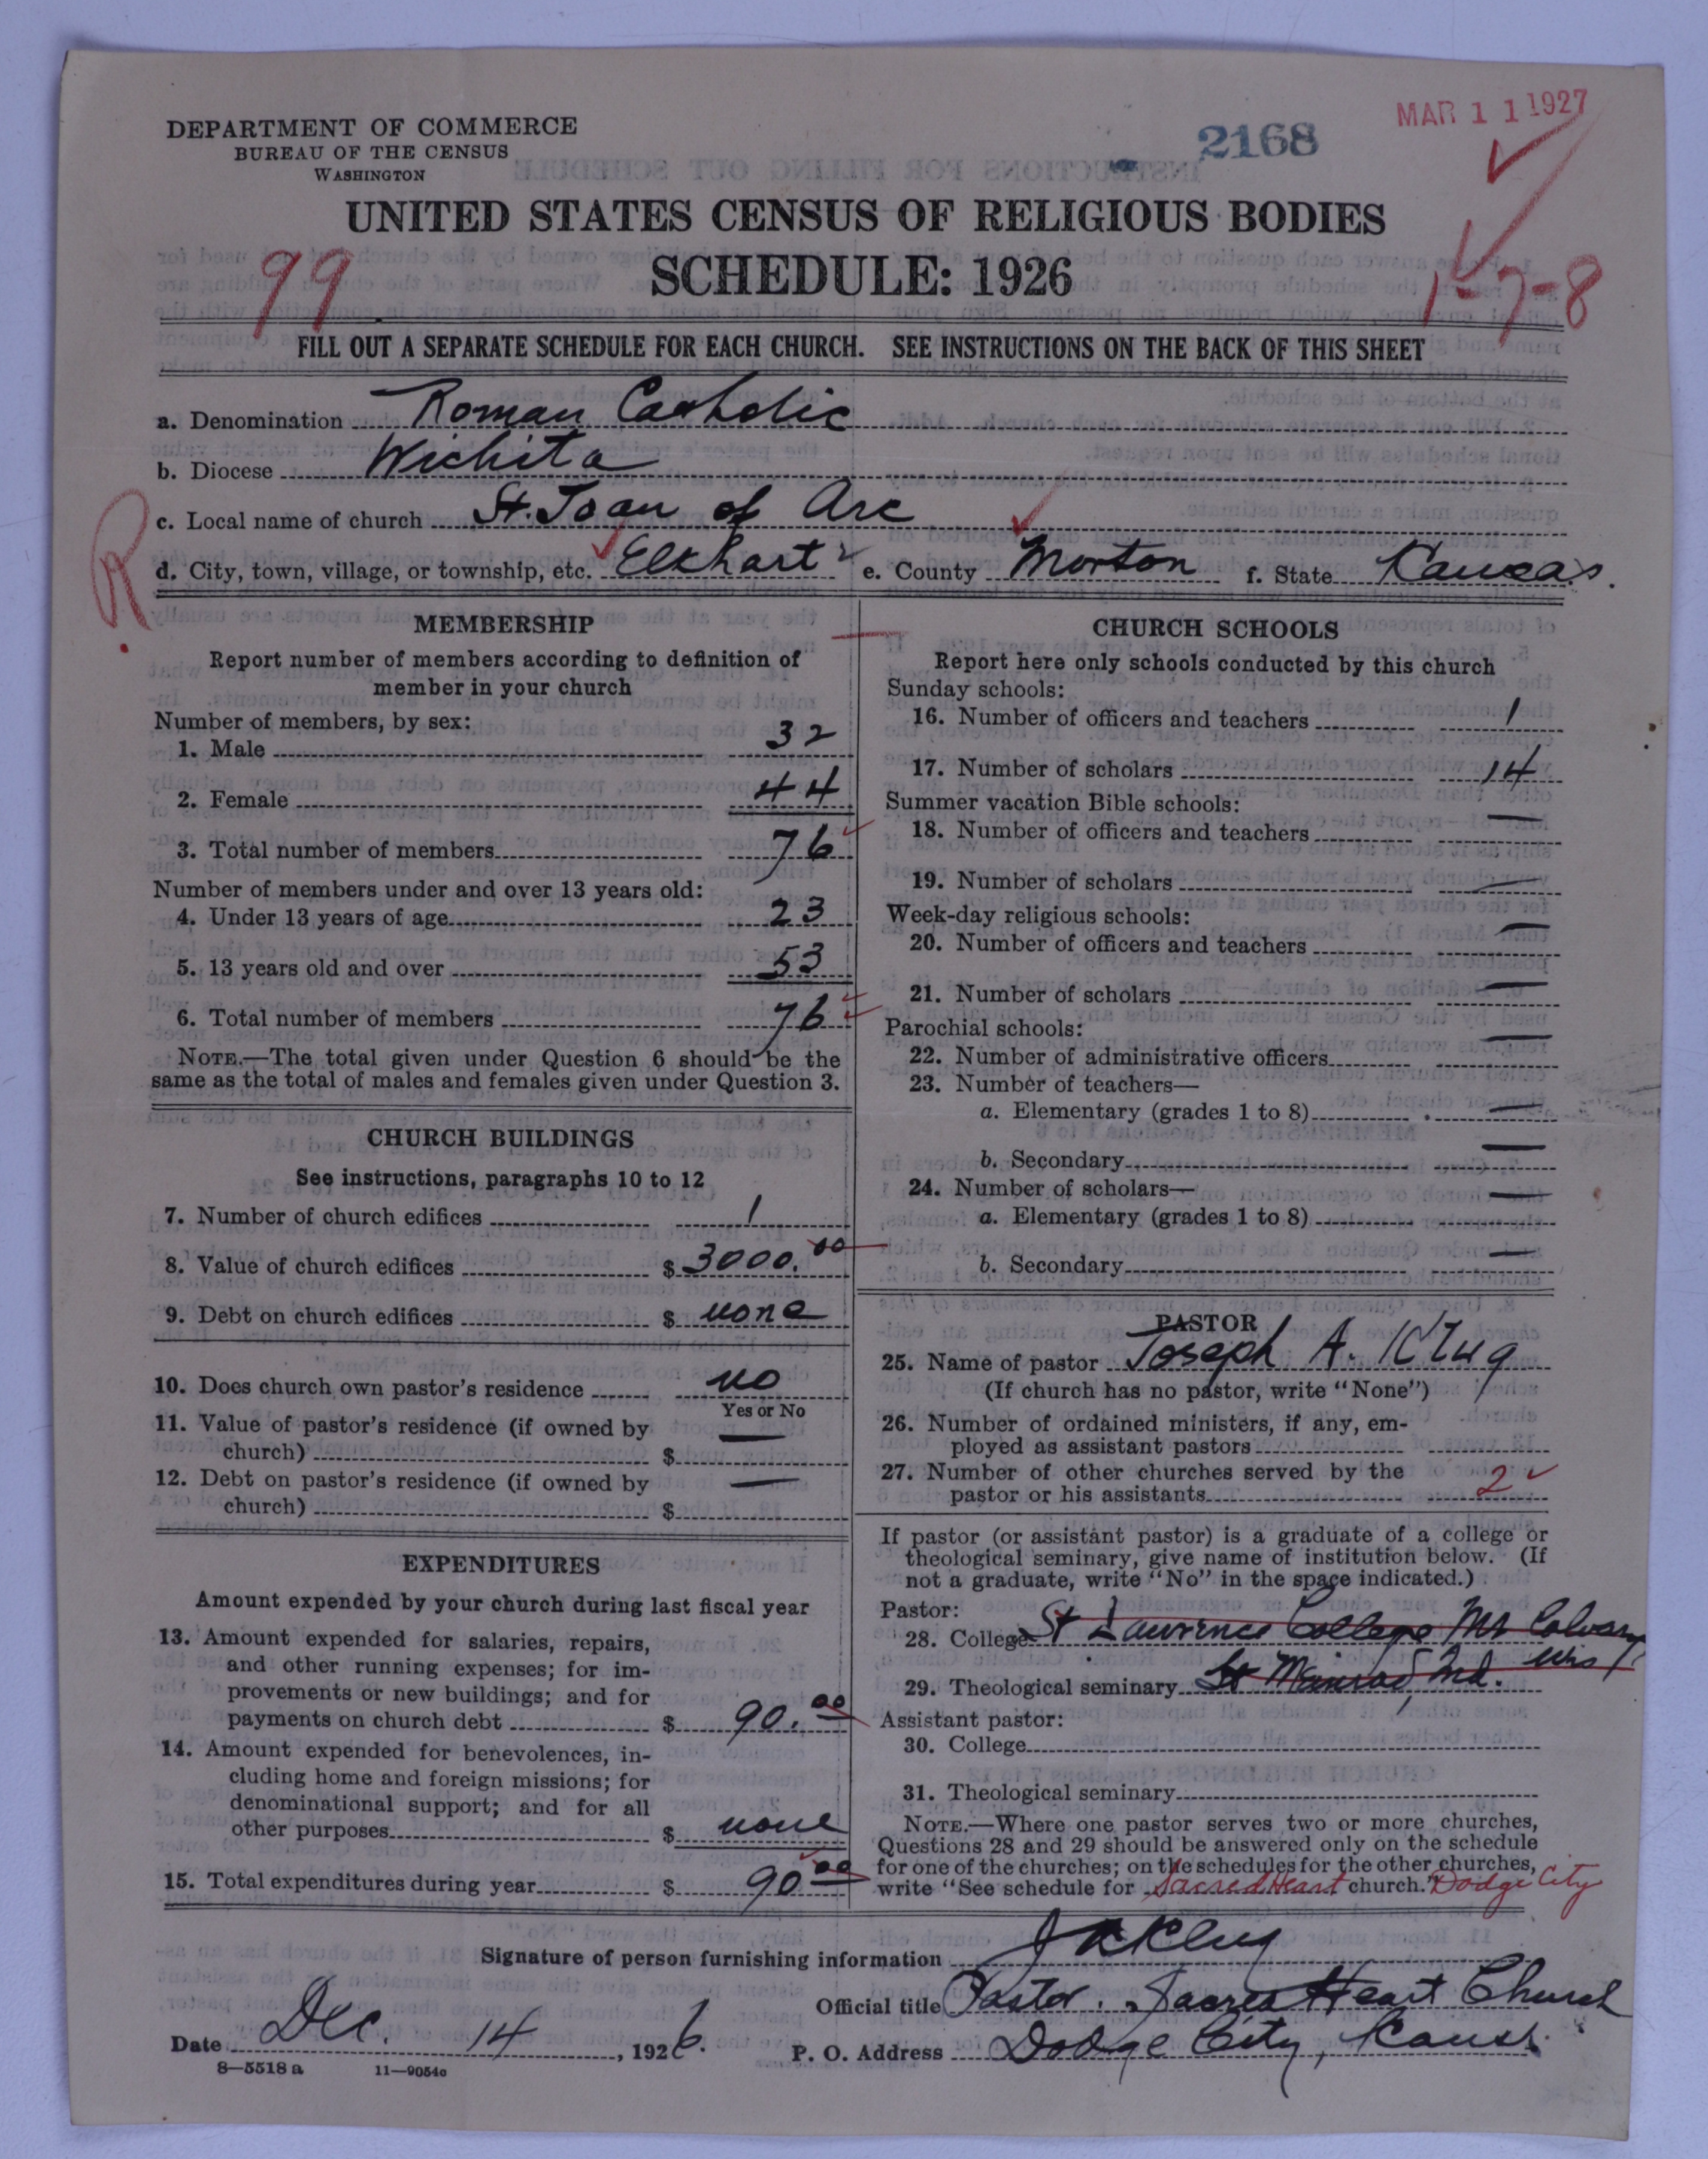 MAR 11 1927
2168
DEPARTMENT OF COMMERCE
BUREAU OF THE CENSUS
WASHINGTON
UNITED STATES CENSUS OF RELIGIOUS BODIES
SCHEDULE: 1926
99
1-7-8
FILL OUT A SEPARATE SCHEDULE FOR EACH CHURCH. SEE INSTRUCTIONS ON THE BACK OF THIS SHEET
a. Denomination Roman Catholic
b. Diocese Wichita
c. Local name of church St. Joan of Arc
R
d. City, town, village, or township, etc. Elkhart e. County Morton f. State Kansas.
MEMBERSHIP
Report number of members according to definition of
member in your church
Number of members, by sex:
1. Male 32
2. Female 44
3. Total number of members 76
Number of members under and over 13 years old:
4. Under 13 years of age 23
5. 13 years old and over 53
6. Total number of members 76
NOTE.—The total given under Question 6 should be the
same as the total of males and females given under Question 3.
CHURCH BUILDINGS
See instructions, paragraphs 10 to 12
7. Number of church edifices 1
8. Value of church edifices $ 3000.00
9. Debt on church edifices $ none
10. Does church own pastor's residence no
Yes or No
11. Value of pastor's residence (if owned by
church) $ —
12. Debt on pastor's residence (if owned by
church) $ —
EXPENDITURES
Amount expended by your church during last fiscal year
13. Amount expended for salaries, repairs,
and other running expenses; for im-
provements or new buildings; and for
payments on church debt $ 90.00
14. Amount expended for benevolences, in-
cluding home and foreign missions; for
denominational support; and for all
other purposes $ none
15. Total expenditures during year $ 90 00
CHURCH SCHOOLS
Report here only schools conducted by this church
Sunday schools:
16. Number of officers and teachers 1
17. Number of scholars 14
Summer vacation Bible schools:
18. Number of officers and teachers —
19. Number of scholars —
Week-day religious schools:
20. Number of officers and teachers —
21. Number of scholars —
Parochial schools:
22. Number of administrative officers —
23. Number of teachers—
a. Elementary (grades 1 to 8) —
b. Secondary —
24. Number of scholars—
a. Elementary (grades 1 to 8) —
b. Secondary —
PASTOR
25. Name of pastor Joseph A. Klug
(If church has no pastor, write "None")
26. Number of ordained ministers, if any, em-
ployed as assistant pastors
27. Number of other churches served by the
pastor or his assistants 2
If pastor (or assistant pastor) is a graduate of a college or
theological seminary, give name of institution below. (If
not a graduate, write "No" in the space indicated.)
Pastor:
28. College St Lawrence College Mt Calvary
Wis
29. Theological seminary St Meinrad, Ind.
Assistant pastor:
30. College
31. Theological seminary
NOTE.—Where one pastor serves two or more churches,
Questions 28 and 29 should be answered only on the schedule
for one of the churches; on the schedules for the other churches,
write "See schedule for Sacred Heart church." Dodge City
Signature of person furnishing information J A Klug
Official title Pastor. Sacred Heart Church
Date Dec. 14, 1926. P. O. Address Dodge City, Kans.
8—5518 a 11—9054c